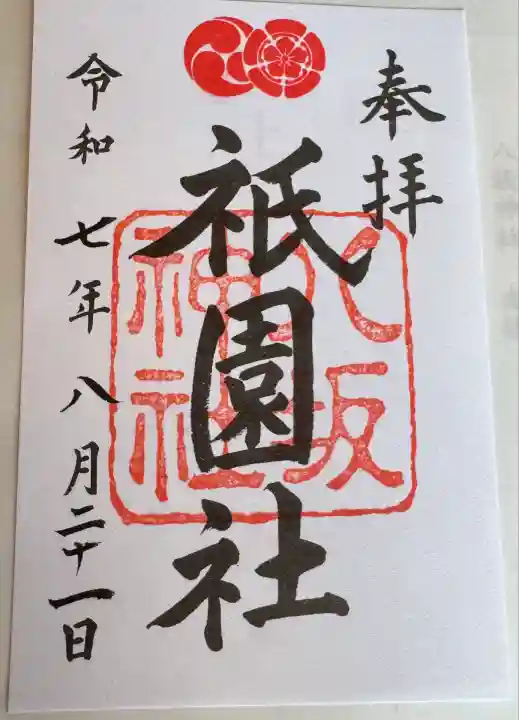 奉拝
八坂
神社
祇園社
令和七年八月二十一日